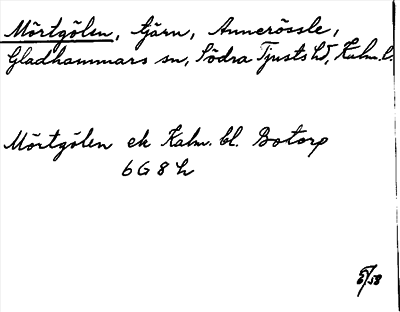 Mörtgölen, tjärn, Annerössle,
Gladhammars sn, Södra Tjusts hd, Kalm. l.
Mörtgölen ek Kalm. bl. Botorp
6 G 8 h
6/58